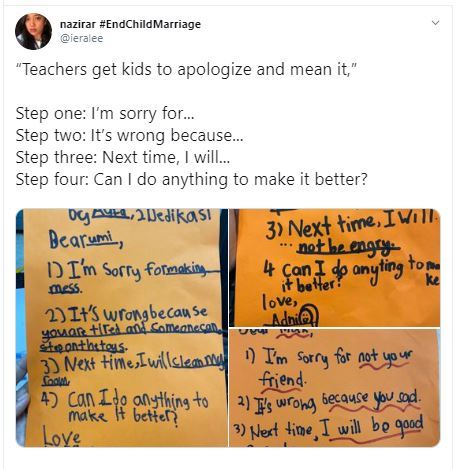 nazirar #EndChildMarriage
@ieralee
“Teachers get kids to apologize and mean it,”
Step one: I’m sorry for...
Step two: It’s wrong because...
Step three: Next time, I will...
Step four: Can I do anything to make it better?
by Aura, 2Dedikasi
Dear umi,
1) I'm Sorry for making
mess.
2) It's wrong because
you are tired and someone can
step on the toys.
3) Next time, I will clean my
room.
4) Can I do anything to
make it better?
Love
3) Next time, I Will
... not be engry.
4 can I do anyting to ma
ke
it better?
love,
Adni
1) I'm sorry for not your
friend.
2) It's wrong because you sad.
3) Next time, I will be good